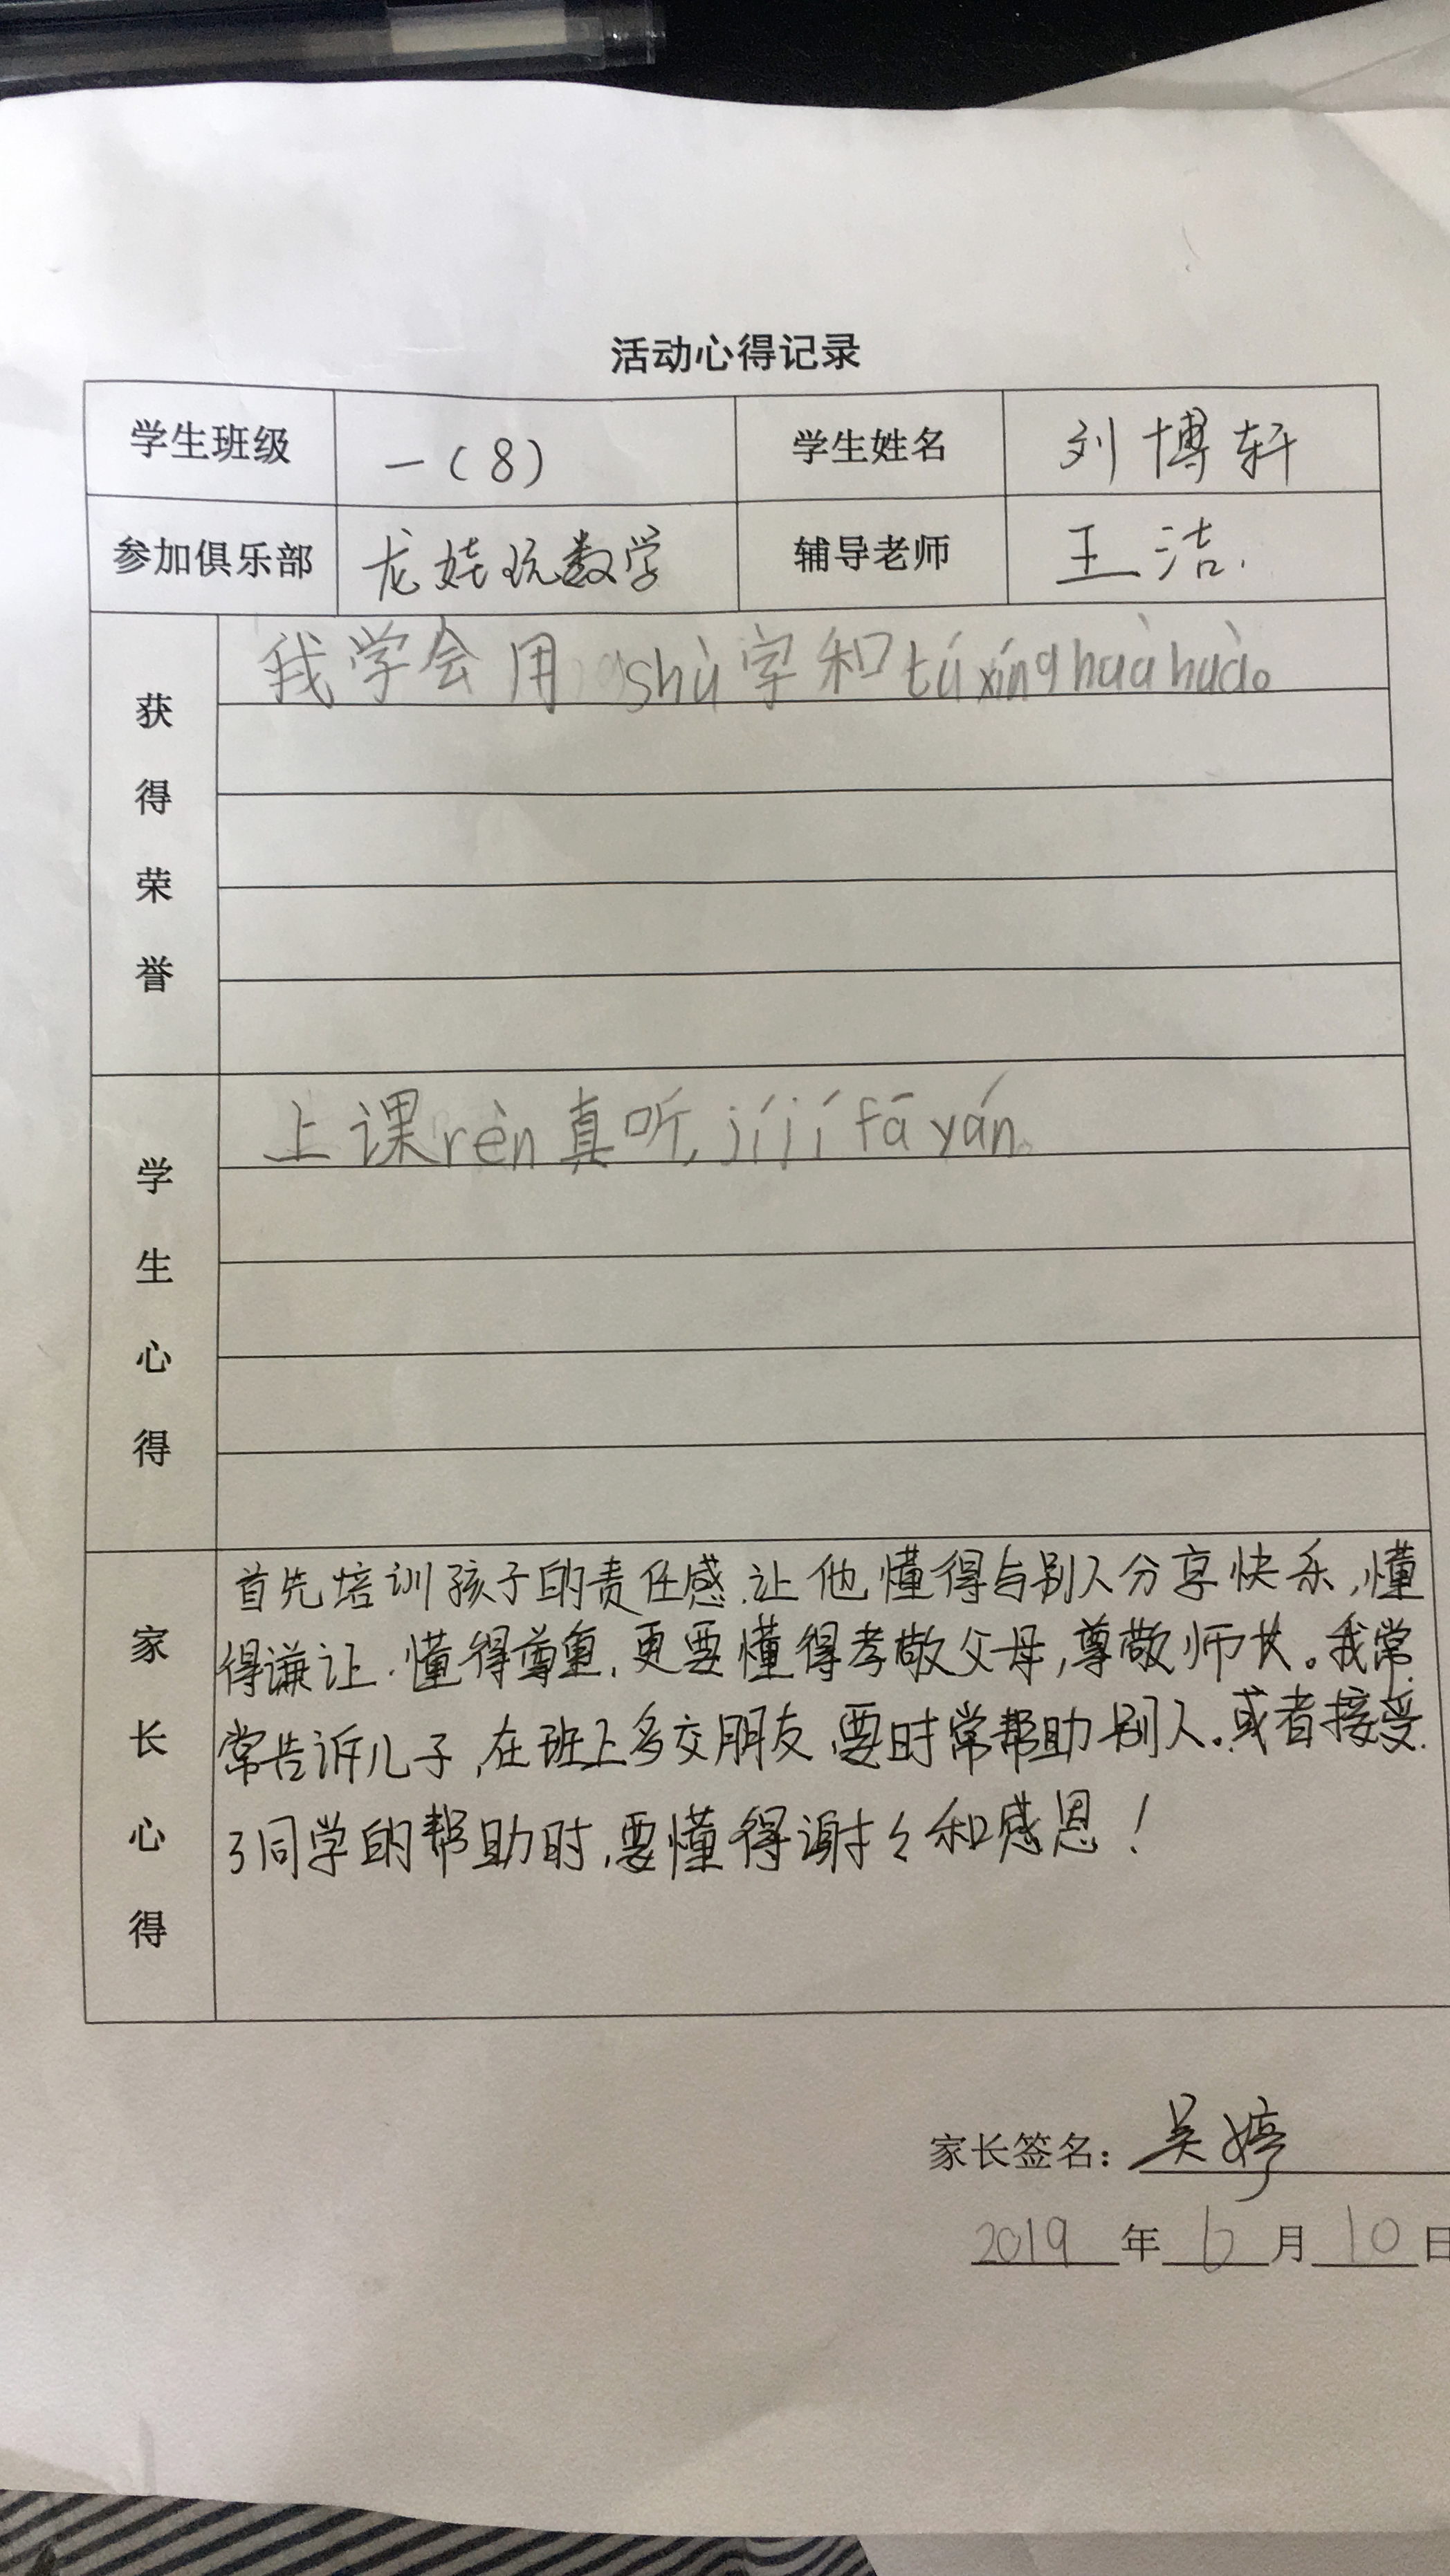 活动心得记录
学生班级 一(8) 学生姓名 刘博轩
参加俱乐部 龙娃玩数学 辅导老师 王洁.
获得荣誉
我学会用shù字和túxínghuàhuà。
学生心得
上课rèn真听,jíjífāyán。
家长心得
首先培训孩子的责任感.让他懂得与别人分享快乐,懂
得谦让.懂得尊重,更要懂得孝敬父母,尊敬师长。我常
常告诉儿子,在班上多交朋友,要时常帮助别人。或者接受
了同学的帮助时,要懂得谢々和感恩!
家长签名: 吴婷
2019 年 6 月 10 日